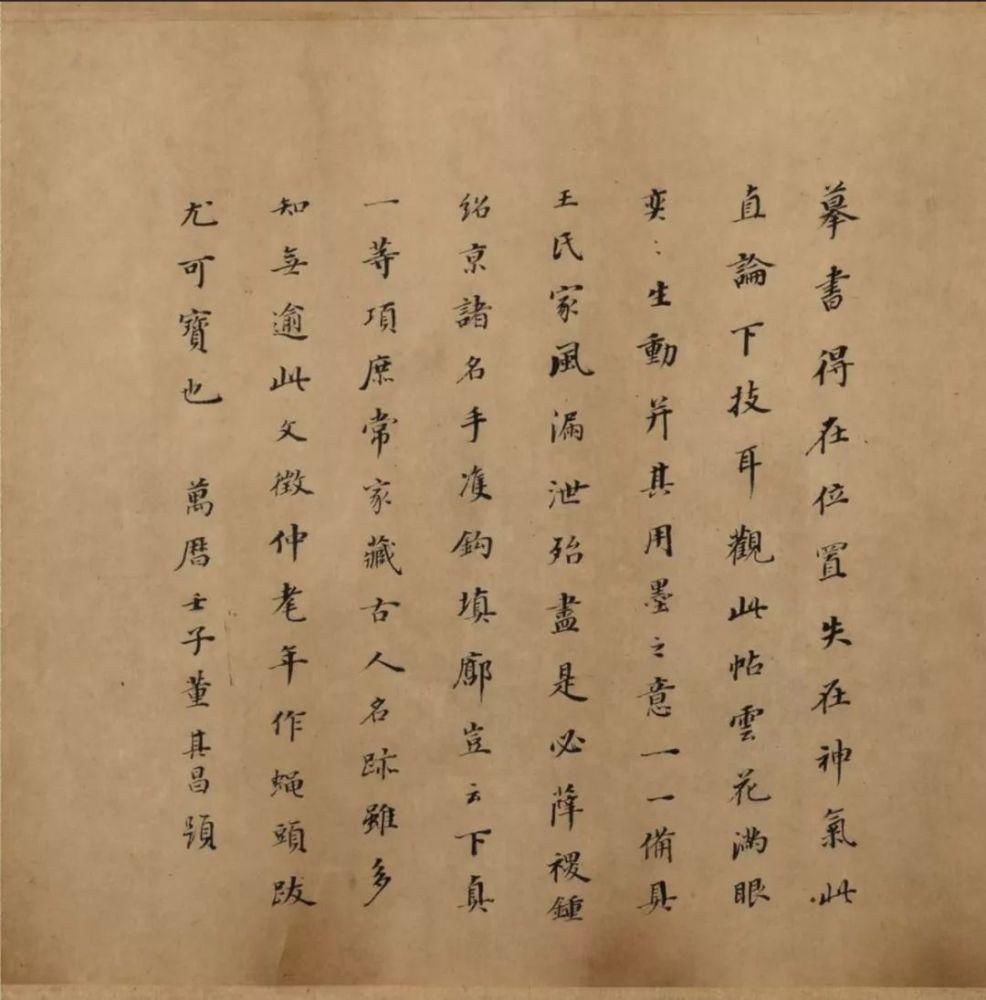 摹書得在位置失在神氣此
直論下技耳觀此帖雲花滿眼
奕〻生動并其用墨之意一一備具
王氏家風漏泄殆盡是必薛稷鍾
紹京諸名手雙鈎填廓豈云下真
一等項庶常家藏古人名跡雖多
知無逾此文徵仲老年作蝇頭跋
尤可寶也 萬曆壬子董其昌題